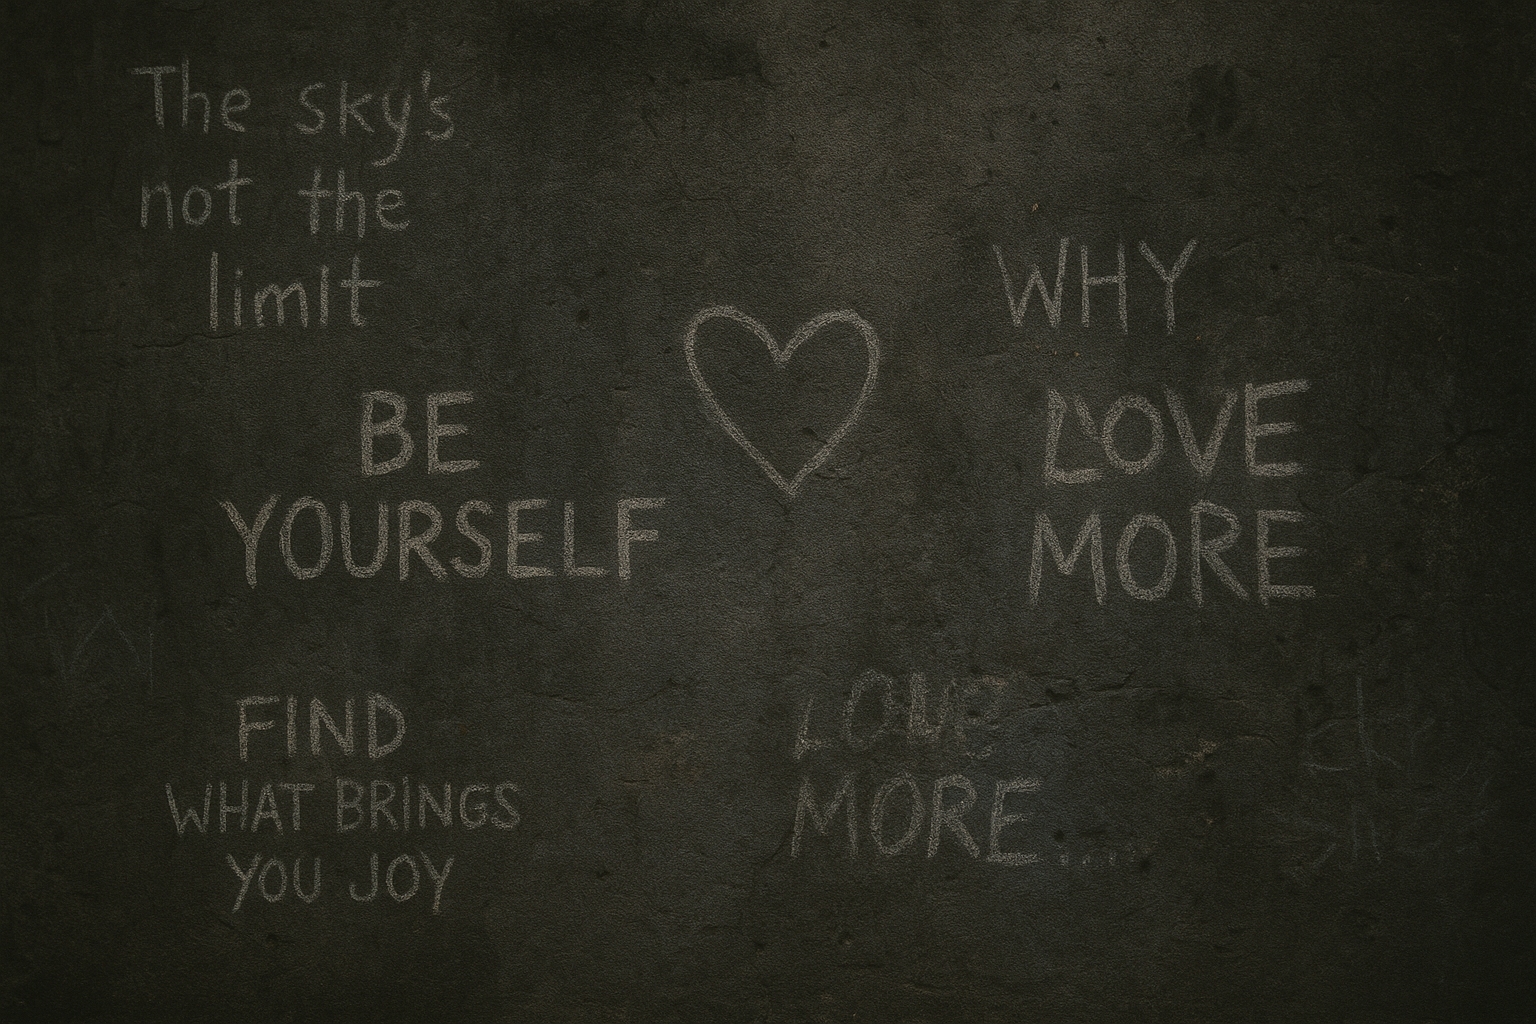 The sky's
not the
limIt
BE
YOURSELF
FIND
WHAT BRINGS
YOU JOY
WHY
LOVE
MORE
MORE....